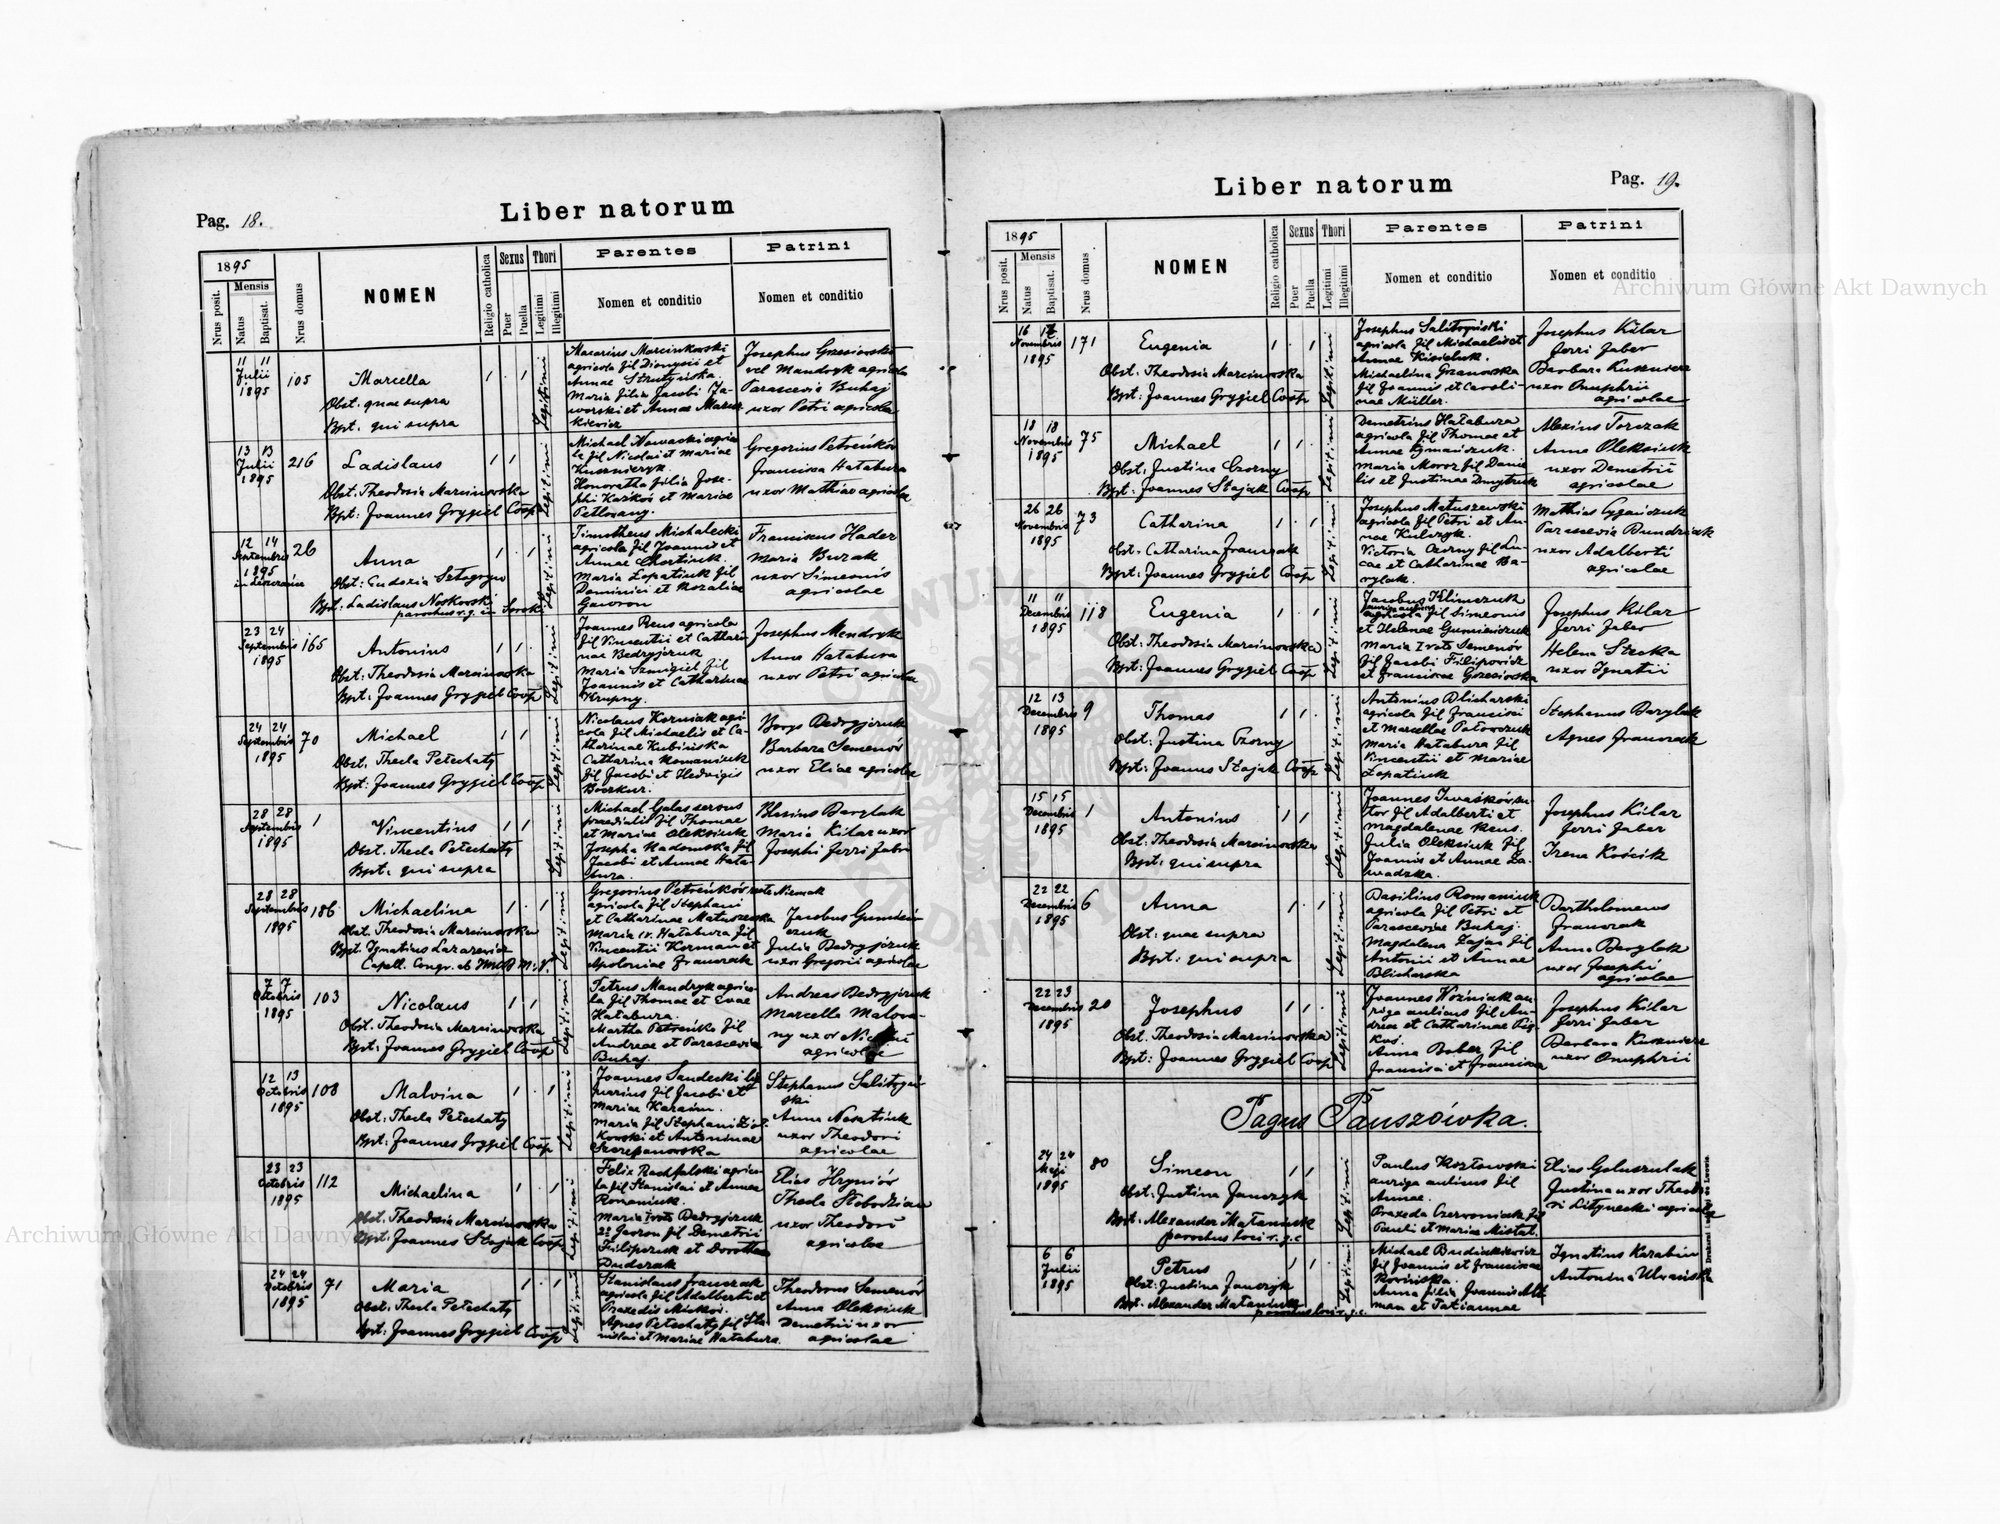 Pag. 18.
Liber natorum
1895
Nrus posit.
Mensis
Natus
Baptisat.
Nrus domus
NOMEN
Religio catholica
Sexus
Puer
Puella
Thori
Legitimi
Illegitimi
Parentes
Nomen et conditio
Patrini
Nomen et conditio
11 11
Julii
1895
105
Marcella
Obst. quae supra
Bpt. qui supra
Legitimi
Macarius Marcinkowski
agricola fil Dionysii et
Annae Strutyńska.
Maria filia Jacobi Ja-
worski et Annae Mazur
kiewicz
Josephus Grzesiowski
vel Mandryk agricola
Parascevia Buhaj
uxor Petri agricolae
13 13
Julii
1895
216
Ladislaus
Obst: Theodosia Marcinowska
Bpt: Joannes Grygiel Coop
Legitimi
Michael Nowacki agrico
la fil Nicolai et Mariae
Kusznieryk.
Honoratha filia Jose-
phi Kaśków et Mariae
Petlowany.
Gregorius Petreńków
Francisca Hatabura
uxor Mathiae agricolae
12 14
Septembris
1895
26
Anna
Obst: Eudoxia
Bpt: Ladislaus Noskowski
parochus r.g. in Soroki
Legitimi
Timotheus Michalecki
agricola fil Joannis et
Annae Chortiuk.
Maria Łopatiuk fil
Dominici et Rozaliae
Gaworon
Franciscus Hader
Maria Buzak
uxor Simeonis
agricolae
23 24
Septembris
1895
165
Antonius
Obst: Theodosia Marcinowska
Bpt: Joannes Grygiel Coop
Legitimi
Joannes Reus agricola
fil Vincentii et Cathari-
nae Bedryjczuk
Maria Szmigiel fil
Joannis et Catharinae
Krupny.
Josephus Mendryk
Anna Hatabura
uxor Petri agricolae
24 24
Septembris
1895
70
Michael
Obst. Thecla Petechaty
Bpt: Joannes Grygiel Coop
Legitimi
Nicolaus Korniak agri-
cola fil Michaelis et Ca-
tharinae Kubińska
Catharina Romaniuk
fil Jacobi et Hedvigis
Boczkur.
Borys Bedryjczuk
Barbara Semenów
uxor Eliae agricolae
28 28
Septembris
1895
1
Vincentius
Obst. Thecla Petechaty
Bpt: qui supra
Legitimi
Michael Galas servus
praedialis fil Thomae
et Mariae Oleksiuk
Josepha Nadomska fil
Jacobi et Annae Hata-
bura.
Blasius Barylak
Maria Kilar uxor
Josephi ferri fabri
28 28
Septembris
1895
186
Michaelina
Obst. Theodosia Marcinowska
Bpt. Ignatius Lazarewicz
Capell. Congr. ab Imac B M. V.
Legitimi
Gregorius Petreńków
agricola fil Stephani
et Catharinae Matuszewska
Maria Hatabura fil
Vincentii Herman et
Apoloniae Franczak
Jacobus Gumień-
czuk
Julia Bedryjczuk
uxor Gregorii agricolae
7 7
Octobris
1895
103
Nicolaus
Obst. Theodosia Marcinowska
Bpt: Joannes Grygiel Coop
Legitimi
Petrus Mandryk agrico-
la fil Thomae et Evae
Hatabura.
Martha Petreńko fil
Andreae et Parascevia
Buhaj.
Andreas Bedryjczuk
Marcella Malowa-
ny uxor Nicolai
agricolae
12 13
Octobris
1895
108
Malvina
Obst: Thecla Petechaty
Bpt: Joannes Grygiel Coop
Legitimi
Joannes Sandecki
fil Jacobi et
Mariae Karaim.
Maria fil Stephani
kowski et Antoninae
Szczepanowska
Stephanus Salityń-
ski
Anna Nesatiuk
uxor Theodori
agricolae
23 23
Octobris
1895
112
Michaelina
Obst: Theodosia Marcinowska
Bpt: Joannes Stajak Coop
Legitimi
Felix Rachfalski agrico-
la fil Stanislai et Annae
Romaniuk.
Maria Bedryjczuk
2o Gaoron fil Demetrii
Filipczuk et Dorothea
Dudczak
Elias Hryniów
Thecla Slobodzian
uxor Theodori
agricolae
24 24
Octobris
1895
71
Maria
Obst: Thecla Petechaty
Bpt: Joannes Grygiel Coop
Legitimi
Stanislaus Franczak
agricola fil Adalberti et
Praxedis Mickos.
Agnes Petechaty fil Sta-
nislai et Mariae Hatabura.
Theodorus Semenów
Anna Oleksiuk
Demetrii uxor
agricolae
Liber natorum
Pag. 19.
1895
Nrus posit.
Mensis
Natus
Baptisat.
Nrus domus
NOMEN
Religio catholica
Sexus
Puer
Puella
Thori
Legitimi
Illegitimi
Parentes
Nomen et conditio
Patrini
Nomen et conditio
16
Novembris
1895
171
Eugenia
Obst: Theodosia Marcinowska
Bpt: Joannes Grygiel Coop
Legitimi
Josephus Salityński
agricola fil Michaelis et
Annae Kisieluk.
Michaelina Granowska
fil Joannis et Caroli-
nae Müller.
Josephus Kilar
ferri faber
Barbara Kusznierz
uxor Onuphrii
agricolae
18 18
Novembris
1895
75
Michael
Obst: Justina Czorny
Bpt: Joannes Stajak Coop
Legitimi
Demetrius Hatabura
agricola fil Thomae et
Annae
Maria Moroz fil Danie
lis et Justinae Dmytruk
Alexius Torczak
Anna Oleksiuk
uxor Demetrii
agricolae
26 26
Novembris
1895
73
Catharina
Obst. Catharina Franczak
Bpt: Joannes Grygiel Coop
Legitimi
Josephus Matuszewski
agricola fil Petri et An-
nae Kulczyk.
Victoria Czorny fil Lu-
cae et Catharinae Ba-
rylak.
Mathias Cygańczuk
Parascevia Bundziak
uxor Adalberti
agricolae
11 11
Decembris
1895
118
Eugenia
Obst: Theodosia Marcinowska
Bpt: Joannes Grygiel Coop
Legitimi
Jacobus Klimczuk
agricola fil Simeonis
et Helenae Gumieńczuk
Maria I voto Semenów
fil Jacobi Filipowicz
et Franciscae Grzesiowska
Josephus Kilar
ferri faber
Helena Stecka
uxor Ignatii
12 13
Decembris
1895
9
Thomas
Obst: Justina Czorny
Bpt: Joannes Stajak Coop
Legitimi
Antonius Blicharski
agricola fil Francisci
et Marcellae Patorczuk
Maria Hatabura fil
Vincentii et Mariae
Łopatiuk
Stephanus Barylak
Agnes Franczak
15 15
Decembris
1895
1
Antonius
Obst: Theodosia Marcinowska
Bpt: qui supra
Legitimi
Joannes Iwaśków su-
tor fil Adalberti et
Magdalenae Reus.
Julia Oleksiuk fil
Joannis et Annae Za-
wadzka.
Josephus Kilar
ferri faber
Irena Kościk
22 22
Decembris
1895
6
Anna
Obst: quae supra
Bpt: qui supra
Legitimi
Basilius Romaniuk
agricola fil Petri et
Parasceviae Buhaj.
Magdalena Zając fil
Antonii et Annae
Blicharska
Bartholomeus
Franczak
Anna Barylak
uxor Josephi
agricolae
22 23
Decembris
1895
20
Josephus
Obst: Theodosia Marcinowska
Bpt: Joannes Grygiel Coop
Legitimi
Joannes Woźniak au-
riga aulicus fil An-
dreae et Catharinae Pię-
koś.
Anna Bober fil
Francisci et Franciscae
Josephus Kilar
ferri faber
Barbara Kusznierz
uxor Onuphrii
Pagus Pauszówka.
24 24
Maji
1895
80
Simeon
Obst: Justina Janczyk
Bpt: Alexander Mataniuk
parochus loci r. g. c
Legitimi
Paulus Kozłowski
auriga aulicus fil
Annae.
Praxeda Czerwoniak fil
Pauli et Mariae Mistal.
Elias Galuszulak
Justina uxor Theodo
ri Litynecki agricolae
6 6
Julii
1895
Petrus
Obst: Justina Janczyk
Bpt: Alexander Mataniuk
parochus loci r. g. c.
Legitimi
Michael Budinkiewicz
fil Joannis et Franciscae
Kowińska.
Anna filia Joannis Alt
man et Tatiannae
Ignatius Karabin
Antonina Ulwańska
Archiwum Główne Akt Dawnych
Archiwum Główne Akt Dawnych